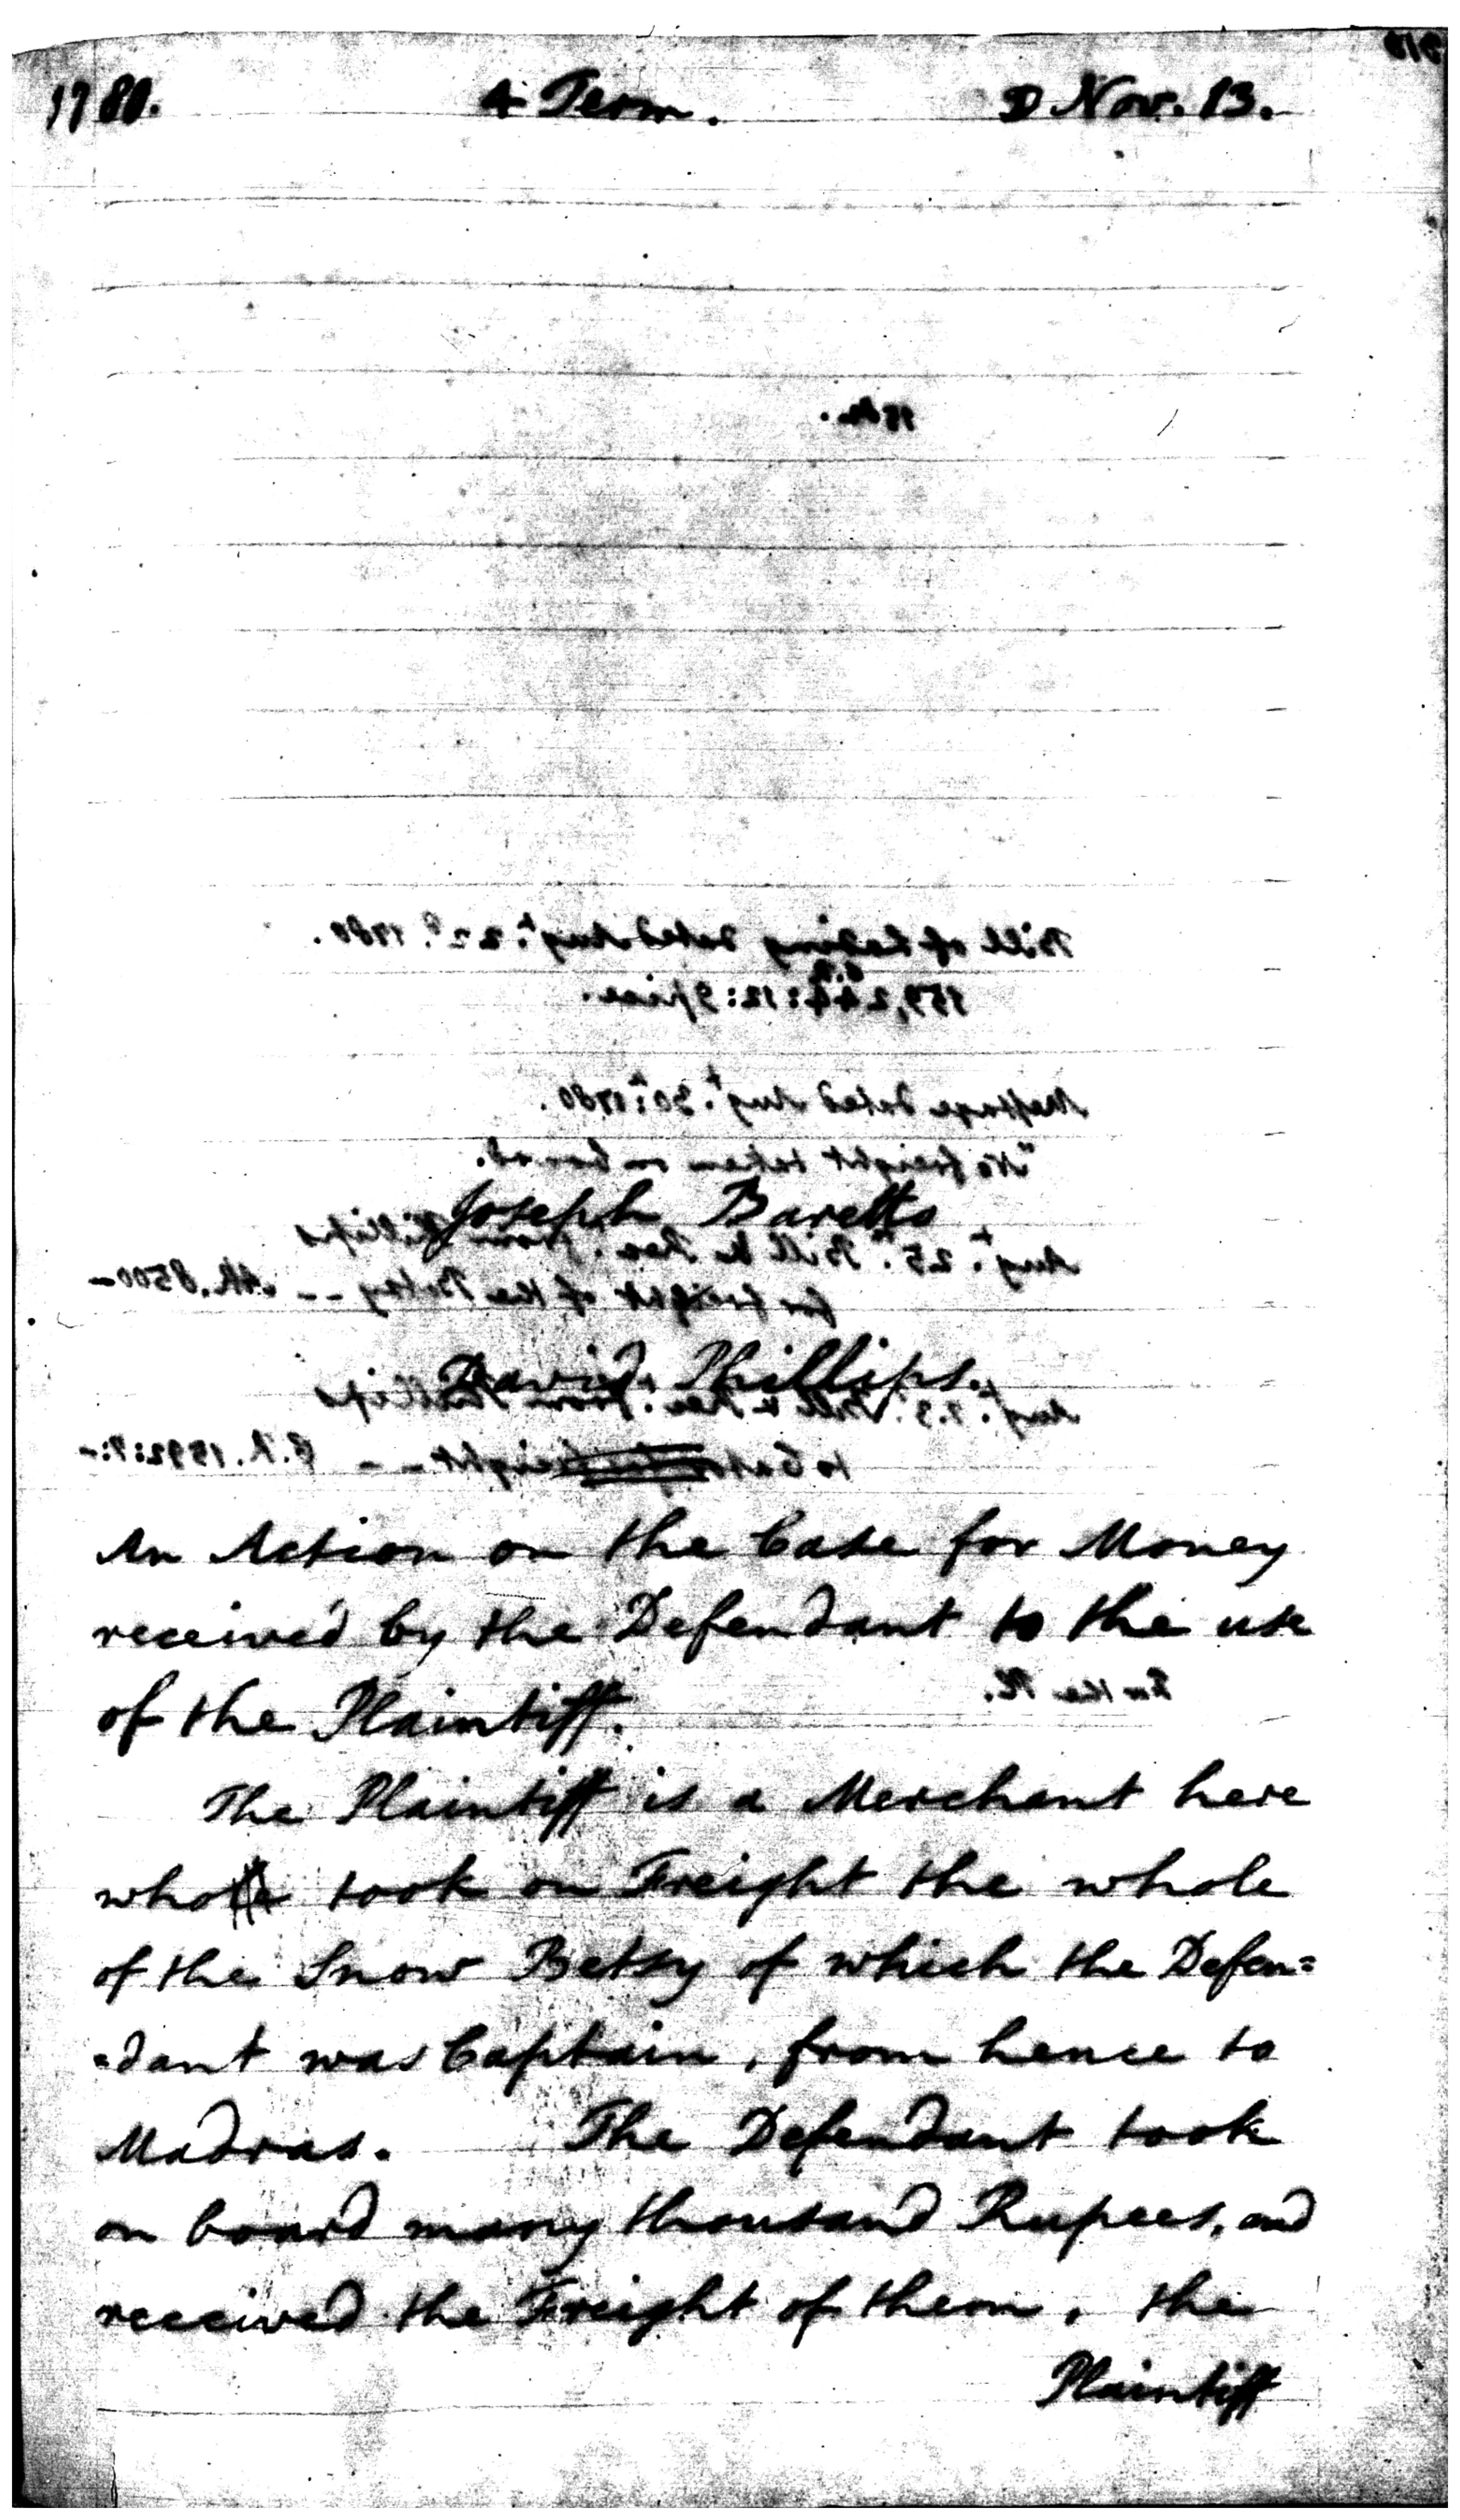 1780. 4 Term. D Nov. 13.
Joseph Baretto
David Phillips.
An Action on the Case for Money
received by the Defendant to the use
of the Plaintiff.
The Plaintiff is a Merchant here
who took on Freight the whole
of the Snow Betsy of which the Defen=
=dant was Captain, from hence to
Madras. The Defendant took
on board many thousand Rupees, and
received the Freight of them, the
Plaintiff